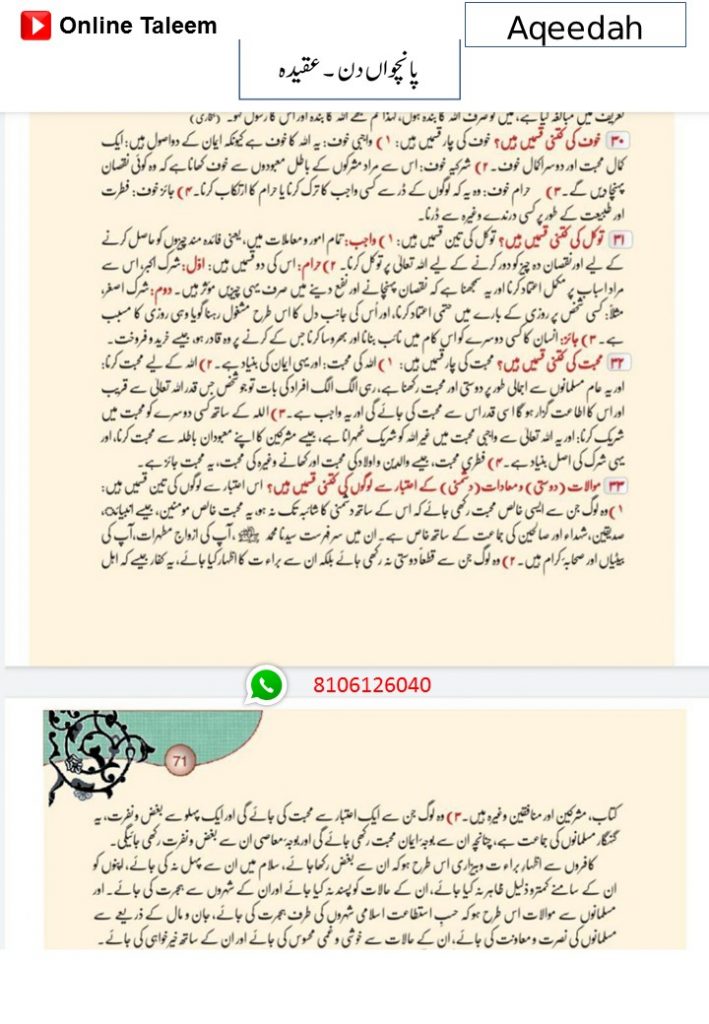 Online Taleem
Aqeedah
پانچواں دن ۔ عقیدہ
تعریف میں مبالغہ کیا ہے، میں تو صرف اللہ کا بندہ ہوں، لہٰذا تم مجھے اللہ کا بندہ اور اس کا رسول کہو۔ (بخاری)
۳۰ خوف کی کتنی قسمیں ہیں؟ خوف کی چار قسمیں ہیں: ۱) واجبی خوف: یہ اللہ کا خوف ہے کیونکہ ایمان کے دو اصول ہیں: ایک
کمال محبت اور دوسرا کمال خوف۔ ۲) شرکیہ خوف: اس سے مراد مشرکوں کے باطل معبودوں سے خوف کھانا ہے کہ وہ کوئی نقصان
پہنچا دیں گے۔ ۳) حرام خوف: وہ یہ کہ لوگوں کے ڈر سے کسی واجب کا ترک کرنا یا حرام کا ارتکاب کرنا۔ ۴) جائز خوف: فطرت
اور طبیعت کے طور پر کسی درندے وغیرہ سے ڈرنا۔
۳۱ توکل کی کتنی قسمیں ہیں؟ توکل کی تین قسمیں ہیں: ۱) واجب: تمام امور و معاملات میں، یعنی فائدہ مند چیزوں کو حاصل کرنے
کے لیے اور نقصان دہ چیز کو دور کرنے کے لیے اللہ تعالیٰ پر توکل کرنا۔ ۲) حرام: اس کی دو قسمیں ہیں: اوّل: شرک اکبر، اس سے
مراد اسباب پر مکمل اعتماد کرنا اور یہ سمجھنا ہے کہ نقصان پہنچانے اور نفع دینے میں صرف یہی چیزیں مؤثر ہیں۔ دوم: شرک اصغر،
مثلاً: کسی شخص پر روزی کے بارے میں حتمی اعتماد کرنا، اور اُس کی جانب دل کا اس طرح مشغول رہنا گویا وہی روزی کا مسبب
ہے۔ ۳) جائز: انسان کا کسی دوسرے کو اس کام میں نائب بنانا اور بھروسا کرنا جس کے کرنے پر وہ قادر ہو، جیسے خرید و فروخت۔
۳۲ محبت کی کتنی قسمیں ہیں؟ محبت کی چار قسمیں ہیں: ۱) اللہ کی محبت: اور یہی ایمان کی بنیاد ہے۔ ۲) اللہ کے لیے محبت کرنا:
اور یہ عام مسلمانوں سے اجمالی طور پر دوستی اور محبت رکھنا ہے، رہی الگ الگ افراد کی بات تو جو شخص جس قدر اللہ تعالیٰ سے قریب
اور اس کا اطاعت گذار ہو گا اسی قدر اس سے محبت کی جائے گی اور یہ واجب ہے۔ ۳) اللہ کے ساتھ کسی دوسرے کو محبت میں
شریک کرنا: اور یہ اللہ تعالیٰ سے واجبی محبت میں غیر اللہ کو شریک ٹھہرانا ہے، جیسے مشرکین کا اپنے معبودان باطلہ سے محبت کرنا، اور
یہی شرک کی اصل بنیاد ہے۔ ۴) فطری محبت، جیسے والدین و اولاد کی محبت اور کھانے وغیرہ کی محبت، یہ محبت جائز ہے۔
۳۳ موالات (دوستی) و معادات (دشمنی) کے اعتبار سے لوگوں کی کتنی قسمیں ہیں؟ اس اعتبار سے لوگوں کی تین قسمیں ہیں:
۱) وہ لوگ جن سے ایسی خالص محبت رکھی جائے کہ اس کے ساتھ دشمنی کا شائبہ تک نہ ہو، یہ محبت خالص مومنین، جیسے
صدیقین، شہداء اور صالحین کی جماعت کے ساتھ خاص ہے۔ ان میں سر فہرست سیدنا محمد ﷺ، آپ کی ازواج مطہرات، آپ کی
بیٹیاں اور صحابہ کرام ہیں۔ ۲) وہ لوگ جن سے قطعاً دوستی نہ رکھی جائے بلکہ ان سے براءت کا اظہار کیا جائے، یہ کفار جیسے کہ اہل
8106126040
71
کتاب، مشرکین اور منافقین وغیرہ ہیں۔ ۳) وہ لوگ جن سے ایک اعتبار سے محبت کی جائے گی اور ایک پہلو سے بغض و نفرت، یہ
گنہگار مسلمانوں کی جماعت ہے، چنانچہ ان سے بوجہ ایمان محبت رکھی جائے گی اور بوجہ معاصی ان سے بغض و نفرت رکھی جائیگی۔
کافروں سے اظہار براءت و بیزاری اس طرح ہو کہ ان سے بغض رکھا جائے، سلام میں ان سے پہل نہ کی جائے، اپنوں کو
ان کے سامنے کمتر و ذلیل ظاہر نہ کیا جائے، ان کے حالات کو پسند نہ کیا جائے اور ان کے شہروں سے ہجرت کی جائے۔ اور
مسلمانوں سے موالات اس طرح ہو کہ حسبِ استطاعت اسلامی شہروں کی طرف ہجرت کی جائے، جان و مال کے ذریعے سے
مسلمانوں کی نصرت و معاونت کی جائے، ان کے حالات سے خوشی و غمی محسوس کی جائے اور ان کے ساتھ خیر خواہی کی جائے۔